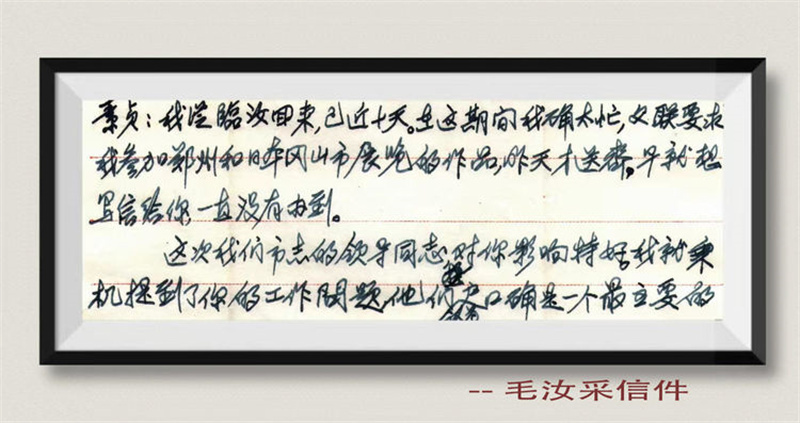 素贞:我从臨汝回来,已近十天。在这期间我确太忙,文联要求
我参加郑州和日本冈山市展览的作品,昨天才送赉。早就想
写信给你,一直没有办到。
这次我们市志的领导同志对你影响特好,我就乘
机提到了你的工作问题,他们户口确是一个最主要的
-- 毛汝采信件